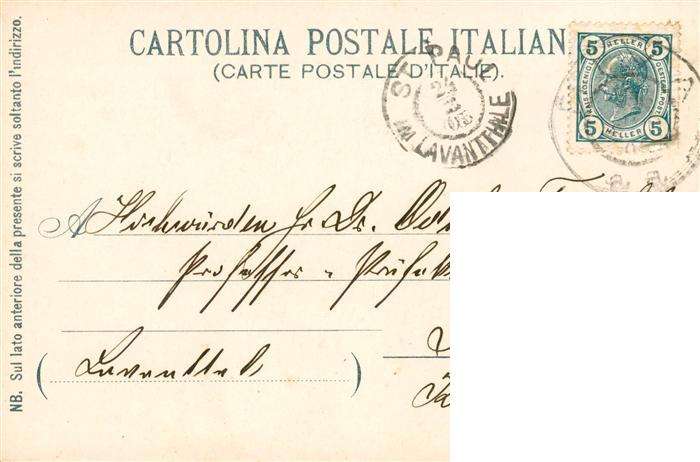 CARTOLINA POSTALE ITALIAN
(CARTE POSTALE D'ITALIE).
ST. PAUL
IM LAVANTTHALE
5 HELLER 5
5 HELLER 5
Hochwürden Hr Dr.
Professor - Präfekt
(Lavanttal)
NB. Sul lato anteriore della presente si scrive soltanto l'indirizzo.